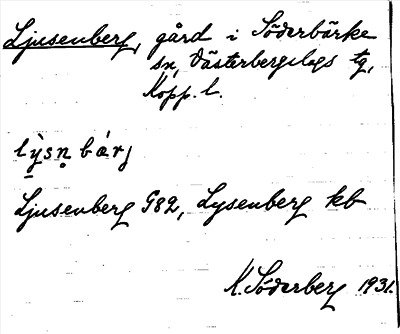 Ljusenberg, gård i Söderbärke
sn, Västerbergslags tg,
Kopp. l.
lỳsn̥bárj
Ljusenberg G82, Lysenberg kb
K. Söderberg 1931.